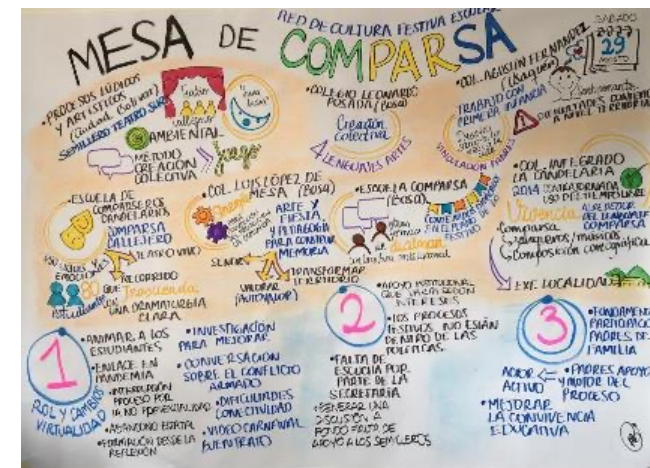 RED DE CULTURA FESTIVA ESCOLAR
MESA DE COMPARSA
SÁBADO
29
AGOSTO
• PROCESOS LÚDICOS
Y ARTÍSTICOS
(Ciudad Bolívar)
SEMILLERO TEATRO SUR
Teatro
callejero
luna
AMBIENTAL
MÉTODO
CREACIÓN
COLECTIVA
juego
• COLEGIO LEONARDO
POSADA (Bosa)
Creación
colectiva
4 LENGUAJES ARTES
• COL. AGUSTÍN FERNÁNDEZ
(Usaquén)
TRABAJO CON
PRIMERA INFANCIA
VINCULACIÓN
DIFICULTADES
A NIVEL TERRITORIAL
• ESCUELA DE
COMPARSEROS
CANDELARIOS
COMPARSA
CALLEJERO
TEATRO VIVO
RECORRIDO
80
estudiantes
QUE
Trascienda
UNA DRAMATURGIA
CLARA
• COL. LUIS LÓPEZ DE
MESA (BOSA)
Energía
ARTE Y
FIESTA
PEDAGOGÍA
PARA CONSTRUIR
MEMORIA
SENTIR
VALORAR
TRANSFORMAR
TERRITORIO
• ESCUELA COMPARSA
(BOSA)
dialogan
institucional
FESTIVO
• COL. INTEGRADO
LA CANDELARIA
2014 CONTRAJORNADA
USO DEL TIEMPO LIBRE
Vivencia
ALREDEDOR
DEL LENGUAJE
COMPARSA
Comparsa
Zanqueros/músicos
Composición coreográfica
LOCALIDAD
1
ROL Y CAMBIOS
VIRTUALIDAD
• ANIMAR A LOS
ESTUDIANTES
• ENLACE EN
PANDEMIA
• INTERRUPCIÓN
PROCESO POR
LA NO PRESENCIALIDAD
• ABANDONO ESTATAL
• FORMACIÓN DESDE LA
REFLEXIÓN
• INVESTIGACIÓN
PARA MEJORAR
• CONVERSACIÓN
SOBRE EL CONFLICTO
ARMADO
• DIFICULTADES
CONECTIVIDAD
• VIDEO CARNAVAL
BUEN TRATO
2
• APOYO INSTITUCIONAL
INTERESES
• LOS PROCESOS
FESTIVOS NO ESTÁN
DENTRO DE LAS
POLÍTICAS
• FALTA DE
ESCUCHA POR
PARTE DE LA
SECRETARÍA
• GENERAR UNA
DISCUSIÓN A
FONDO FALTA DE
APOYO A LOS SEMILLEROS
3
• FUNDAMENTAL
PARTICIPACIÓN
PADRES DE
FAMILIA
• PADRES APOYO
Y MOTOR DEL
PROCESO
ACTOR
ACTIVO
• MEJORAR
LA CONVIVENCIA
EDUCATIVA